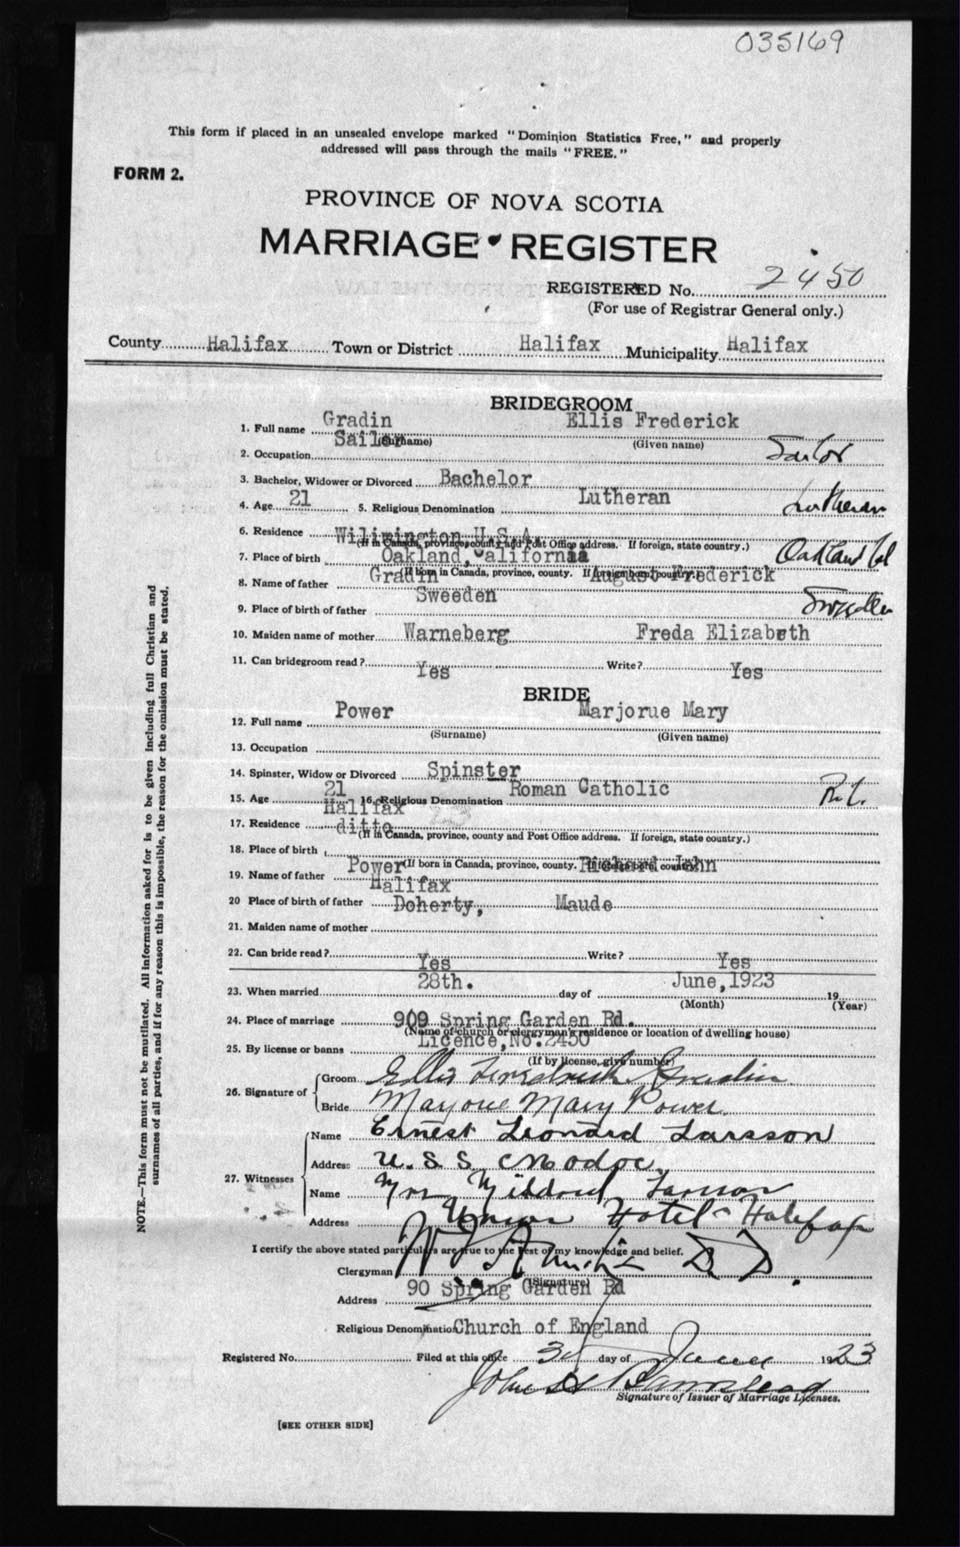 035169
This form if placed in an unsealed envelope marked "Dominion Statistics Free," and properly
addressed will pass through the mails "FREE."
FORM 2.
PROVINCE OF NOVA SCOTIA
MARRIAGE REGISTER
REGISTERED No. 2450
(For use of Registrar General only.)
County Halifax Town or District Halifax Municipality Halifax
BRIDEGROOM
1. Full name Gradin Ellis Frederick
(Surname) (Given name)
2. Occupation Sailor Sailor
3. Bachelor, Widower or Divorced Bachelor
4. Age 21 5. Religious Denomination Lutheran Lutheran
6. Residence Wilimington U.S.A.
(If in Canada, province, county and Post Office address. If foreign, state country.)
7. Place of birth Oakland, California Oakland Cal
(If born in Canada, province, county. If foreign born country.)
8. Name of father Gradin August Frederick
9. Place of birth of father Sweeden Sweden
10. Maiden name of mother Warneberg Freda Elizabeth
11. Can bridegroom read? Yes Write? Yes
BRIDE
12. Full name Power Marjorue Mary
(Surname) (Given name)
13. Occupation
14. Spinster, Widow or Divorced Spinster
15. Age 21 16. Religious Denomination Roman Catholic R.C.
17. Residence Halifax
(If in Canada, province, county and Post Office address. If foreign, state country.)
18. Place of birth ditto
(If born in Canada, province, county. If foreign born, country.)
19. Name of father Power Richard John
20 Place of birth of father Halifax
21. Maiden name of mother Doherty, Maude
22. Can bride read? Yes Write? Yes
23. When married 28th. day of June, 1923 19
(Month) (Year)
24. Place of marriage 909 Spring Garden Rd.
(Name of church or clergyman's residence or location of dwelling house)
25. By license or banns Licence, No. 2450
(If by license, give number)
26. Signature of Groom Ellis Frederick Gradin
Bride Marjorie Mary Power
27. Witnesses Name Ernest Leonard Larsson
Address U.S.S. Modoc
Name Mrs Mildred Larsson
Address Union Hotel Halifax
I certify the above stated particulars are true to the best of my knowledge and belief.
Clergyman D D.
(Signature)
Address 90 Spring Garden Rd
Religious Denomination Church of England
Registered No. Filed at this office 30 day of June 1923
John
Signature of Issuer of Marriage Licenses.
[SEE OTHER SIDE]
NOTE.—This form must not be mutilated. All information asked for is to be given including full Christian and
surnames of all parties, and if for any reason this is impossible, the reason for the omission must be stated.